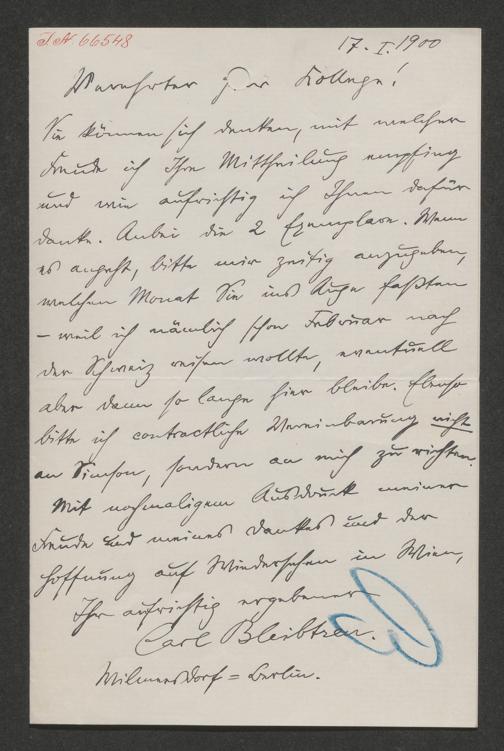 J.N. 66548
17. I. 1900
Verehrter Herr Kollege!
Sie können sich denken, mit welcher
Freude ich Ihre Mittheilung empfing
und wie aufrichtig ich Ihnen dafür
danke. Anbei die 2 Exemplare. Wenn
es angeht, bitte mir zeitig anzugeben,
welchen Monat Sie ins Auge faßten
– weil ich nämlich schon Februar nach
der Schweiz reisen wollte, eventuell
aber dann so lange hier bleibe. Ebenso
bitte ich contractliche Vereinbarung nicht
an Simson, sondern an mich zu richten.
Mit nochmaligem Ausdruck meiner
Freude und meines Dankes und der
Hoffnung auf Wiedersehen in Wien,
Ihr aufrichtig ergebener
Carl Bleibtreu.
Wilmersdorf = Berlin.